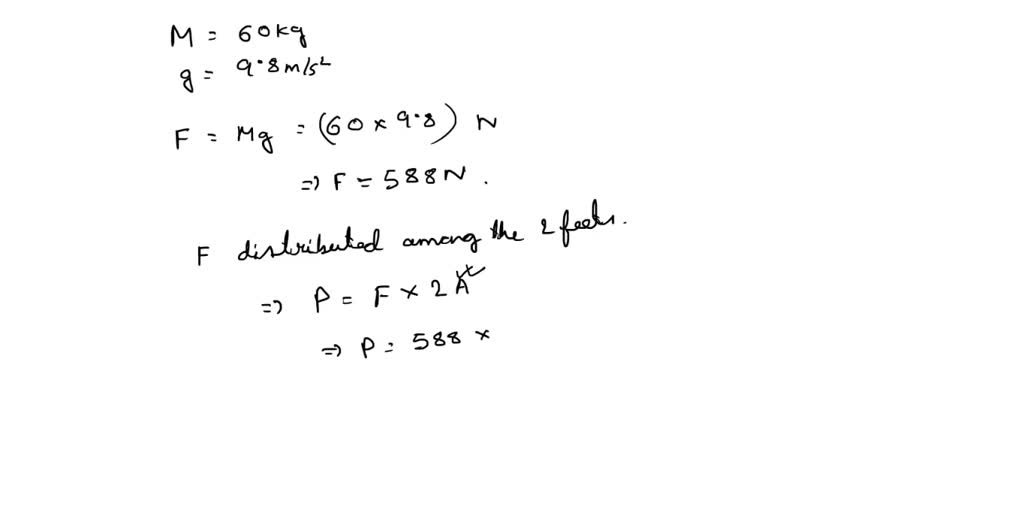 M = 60kg
g = 9.8 m/s²
F = Mg = (60 × 9.8) N
⇒ F = 588 N.
F distributed among the 2 feets.
⇒ P = F × 2 A
⇒ P = 588 ×